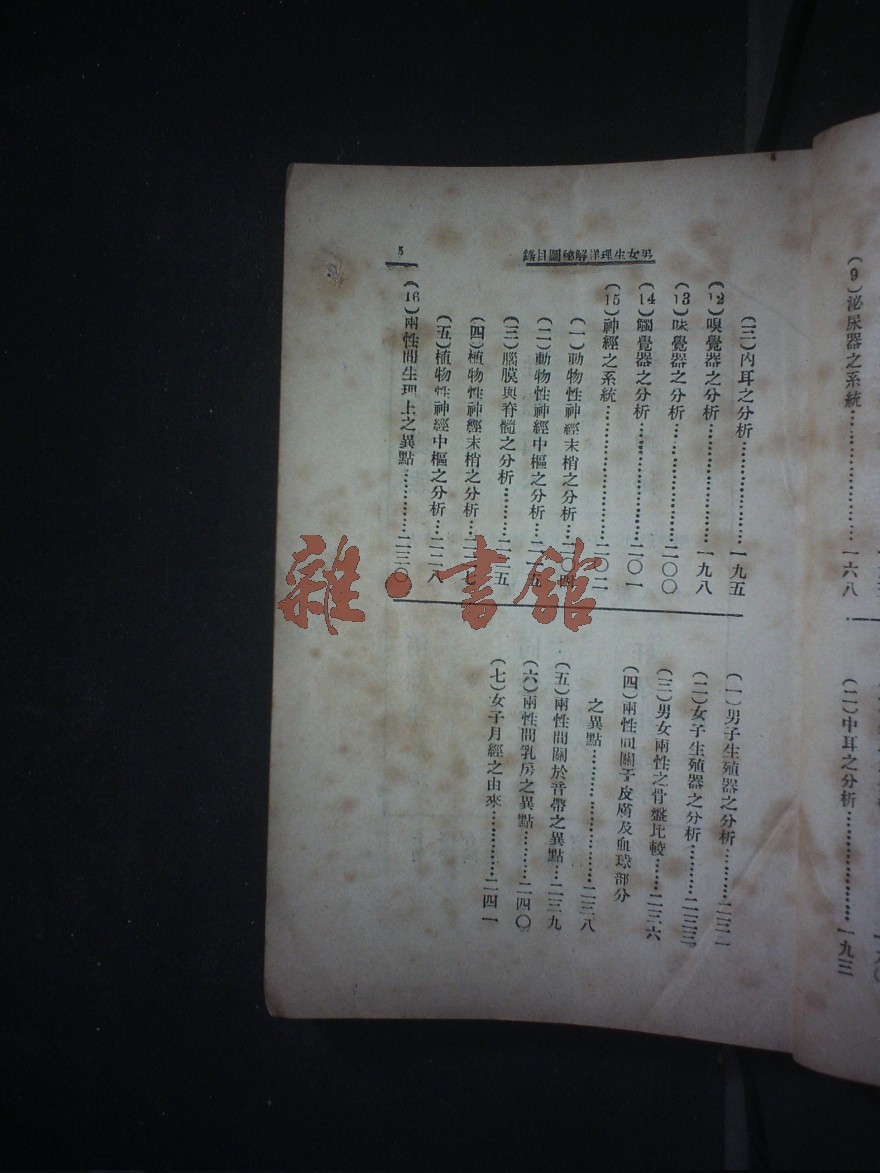 男女生理詳解秘圖目錄
5
(三)內耳之分析…………一九五
(12)嗅覺器之分析…………一九八
(13)味覺器之分析…………二〇〇
(14)觸覺器之分析…………二〇一
(15)神經之系統…………二〇二
(一)動物性神經末梢之分析…二〇四
(二)動物性神經中樞之分析…二一五
(三)腦膜與脊髓之分析…………二二五
(四)植物性神經末梢之分析…二二七
(五)植物性神經中樞之分析…二二八
(16)兩性間生理上之異點…………二三〇
(一)男子生殖器之分析…………二三一
(二)女子生殖器之分析…………二三三
(三)男女兩性之骨盤比較……二三六
(四)兩性間關于皮膚及血球部分
之異點…………二三八
(五)兩性間關於音帶之異點…二三九
(六)兩性間乳房之異點………二四〇
(七)女子月經之由來…………二四一
(9)泌尿器之系統…………一六八
(二)中耳之分析…………一九三
雜·書館